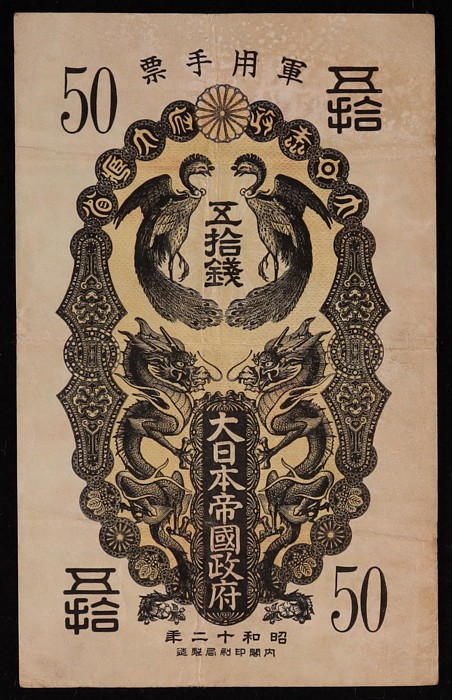 軍用手票
50
五拾
大日本政府大藏省
五拾錢
大日本帝國政府
五拾
50
昭和十二年
内閣印刷局製造